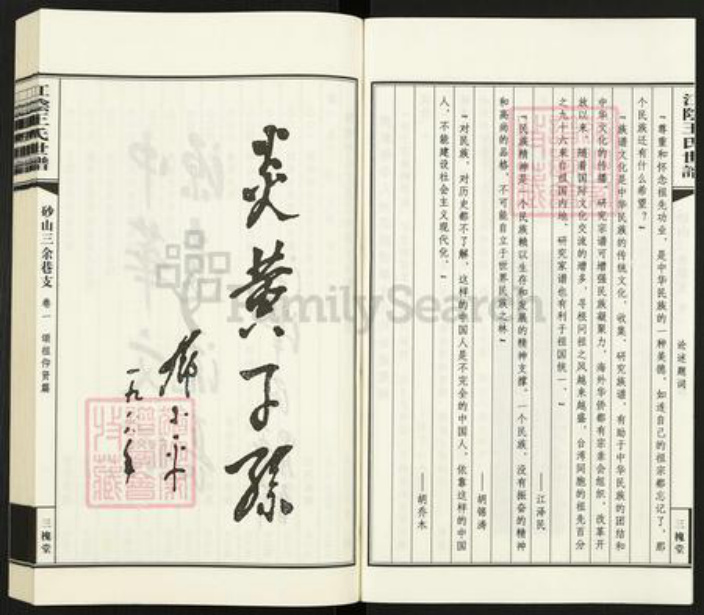 江陰王氏世譜
论述题词
三槐堂
“尊重和怀念祖先功业，是中华民族的一种美德，如连自己的祖宗都忘记了，那
个民族还有什么希望？”
“族谱文化是中华民族的传统文化，收集、研究族谱，有助于中华民族的团结和
中华文化的传播，研究宗谱可增强民族凝聚力，海外华侨都有宗亲会组织，改革开
放以来，随着国际文化交流的增多，寻根问祖之风越来越盛，台湾同胞的祖先百分
之九十六来自祖国内地，研究家谱也有利于祖国统一。”
——江泽民
“民族精神是一个民族赖以生存和发展的精神支撑。一个民族，没有振奋的精神
和高尚的品格，不可能自立于世界民族之林。”
——胡锦涛
“对民族、对历史都不了解，这样的中国人是不完全的中国人，依靠这样的中国
人，不能建设社会主义现代化。”
——胡乔木
炎黄子孙
邓小平
一九八六年
江陰王氏世譜
砂山三余巷支
卷一
颂祖仰贤篇
三槐堂
FamilySearch